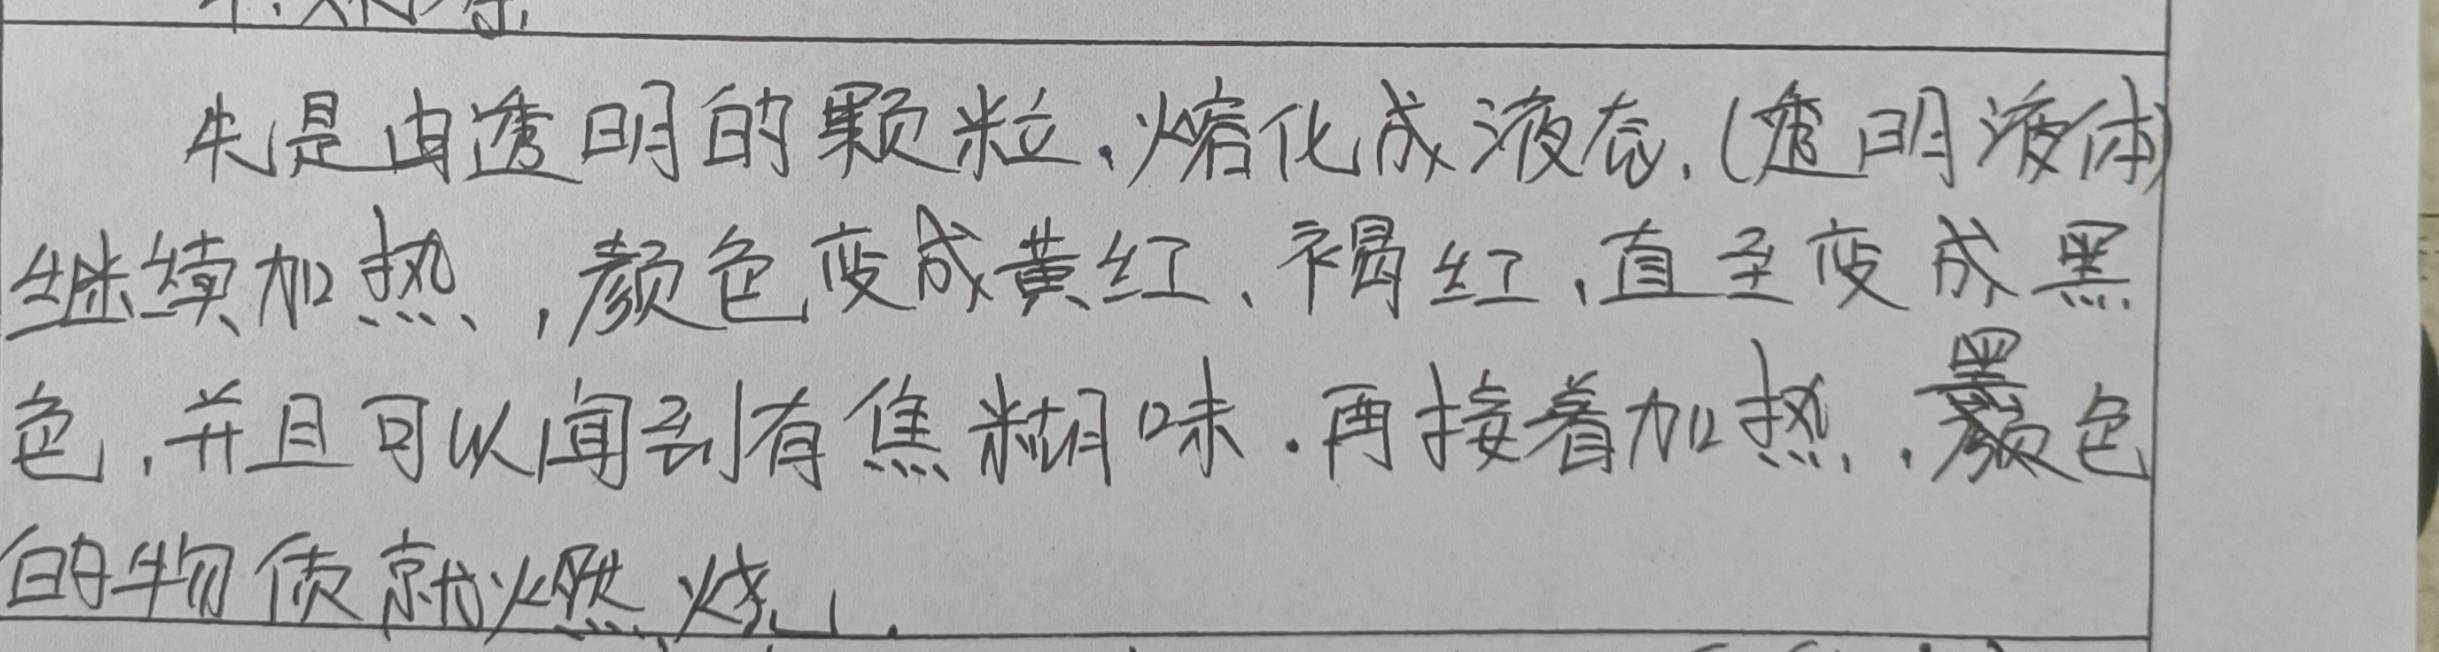 先是由透明的颗粒,熔化成液态.(透明液体)
继续加热,颜色变成黄红、褐红,直至变成黑
色,并且可以闻到有焦糊味.再接着加热,黑色
的物质就燃烧.